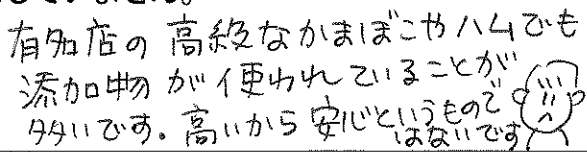 有名店の高級なかまぼこやハムでも
添加物が使われていることが
多いです。高いから安心というもので
はないです